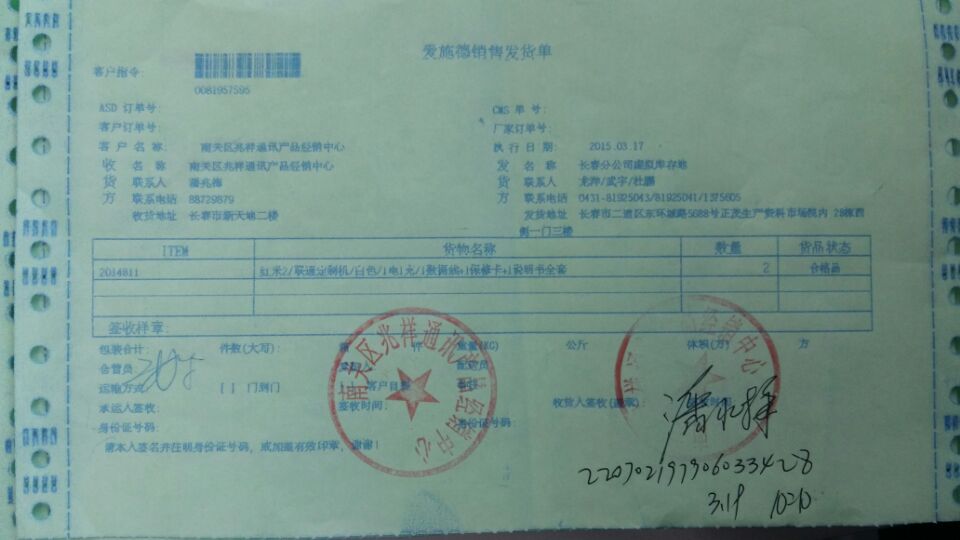 爱施德销售发货单
客户指令:
0081957595
ASD 订单号:
CMS 单 号:
客户订单号:
厂家订单号:
客 户 名 称: 南关区兆祥通讯产品经销中心
执 行 日 期: 2015.03.17
收 名 称 南关区兆祥通讯产品经销中心
发 名 称 长春分公司虚拟库存地
货 联系人 潘兆梅
货 联系人 龙萍/武宇/杜鹏
方 联系电话 88729879
方 联系电话 0431-81925043/81925041/1375605
收货地址 长春市新天地二楼
发货地址 长春市二道区东环城路5688号正茂生产资料市场院内 28栋西
侧一门三楼
ITEM 货物名称 数量 货品状态
2014811 红米2/联通定制机/白色/1电1充/1数据线+1保修卡+1说明书全套 2 合格品
签收样章:
包装合计: 件数(大写): 箱 件 重量(KG) 公斤 体积(方) 方
仓管员
运输方式 [ ] 门到门 客户自提
承运人签收: 签收时间: 收货人签收(盖章):
身份证号码: 身份证号码:
请本人签名并注明身份证号码, 或加盖有效印章, 谢谢!
南关区兆祥通讯产品经销中心
220702197906033428
3.19 10:20